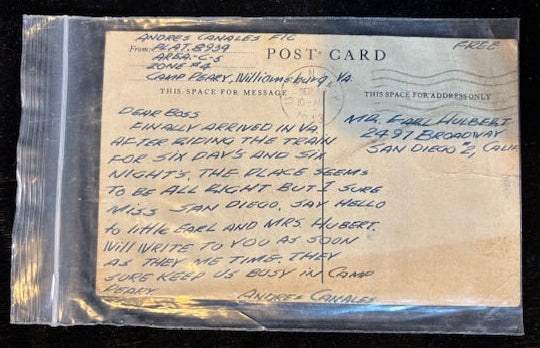 ANDRES CANALES F1C
From: PLAT. 8939
AREA-C-5
ZONE #4
CAMP PEARY, Williamsburg, VA.
FREE
POST CARD
THIS SPACE FOR MESSAGE
THIS SPACE FOR ADDRESS ONLY
SEP
10-
1943
MR. EARL HULBERT
2497 BROADWAY
SAN DIEGO #2, CALIF
DEAR BOSS
FINALLY ARRIVED IN VA.
AFTER RIDING THE TRAIN
FOR SIX DAY'S AND SIX
NIGHTS. THE PLACE SEEMS
TO BE ALL RIGHT BUT I SURE
MISS SAN DIEGO. SAY HELLO
to little EARL AND MRS. HUBERT.
Will WRITE TO YOU AS SOON
AS THEY ME TIME. THEY
SURE KEEP US BUSY in CAMP
PEARY.
ANDRES CANALES